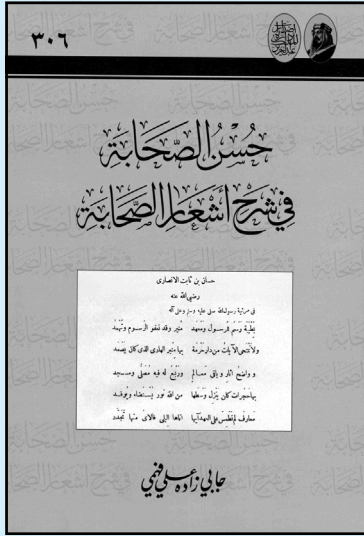 ٣٠٦
حُسْنُ الصَّحَابَةِ
فِي شَرْحِ أَشْعَارِ الصَّحَابَةِ
حسان بن ثابت الانصارى
رضى الله عنه
فى مرثية رسول الله صلى عليه وسلم وعلى آله
بِطَيْبَةَ رَسْمٌ لِلرَّسُولِ وَمَعْهَدُ مُنِيرٌ وَقَد تَعْفُو الرُّسُومُ وَتَهْمُدُ
وَلَا تَمْتَحِى الْآيَاتُ مِن دَارِ حُرْمَةٍ بِهَا مِنْبَرُ الهَادِى الذى كَانَ يَصْعَدُ
وَوَاضِحُ آثَارٍ وَبَاقِى مَعَـالِمٍ وَرَبْعٌ لَهُ فِيهِ مُصَلًّى وَمَسْـجِدُ
بِهَا حُجُرَاتٌ كَانَ يَنْزِلُ وَسْطَهَا مِنَ اللهِ نُورٌ يُسْتَضَاءُ وَيُوقَـدُ
مَعَارِفُ لَمْ تُطْمَسْ عَلَى العَهْدِ آيُهَا أَتَاهَا الْبِلَى فَالآىُ مِنْهَا تَجَدَّدُ
جابي زاده علي فهمي